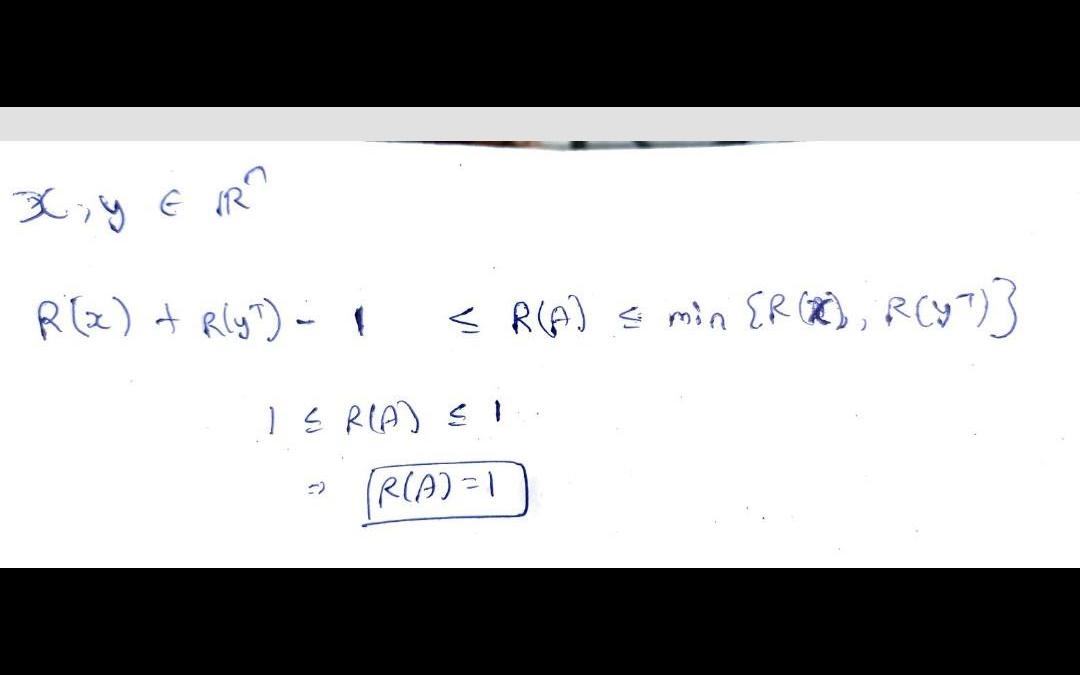 x, y ∈ ℝⁿ
R(x) + R(yᵀ) - 1 ≤ R(A) ≤ min {R(x), R(yᵀ)}
1 ≤ R(A) ≤ 1
⇒ R(A) = 1